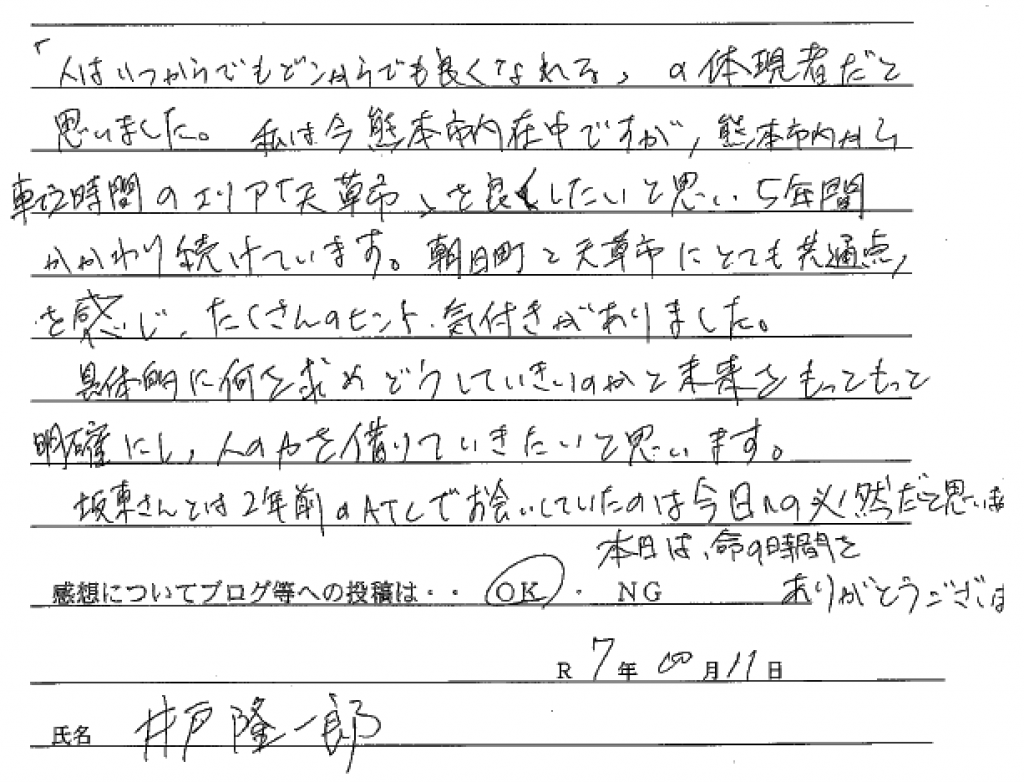 「人はいつからでもどこからでも良くなれる」の体現者だと
思いました。私は今熊本市内在中ですが、熊本市内から
車2時間のエリア「天草市」を良くしたいと思い5年間
かかわり続けています。朝日町と天草市にとても共通点、
を感じ、たくさんのヒント・気付きがありました。
具体的に何を求めどうしていきいのかと未来をもっともっと
明確にし、人の力を借りていきたいと思います。
坂東さんとは2年前のATCでお会いしていたのは今日への必然だと思いま
本日は、命の時間を
感想についてブログ等への投稿は・・ OK ・ NG
ありがとうございま
R 7年 月11日
氏名 井戸隆一郎